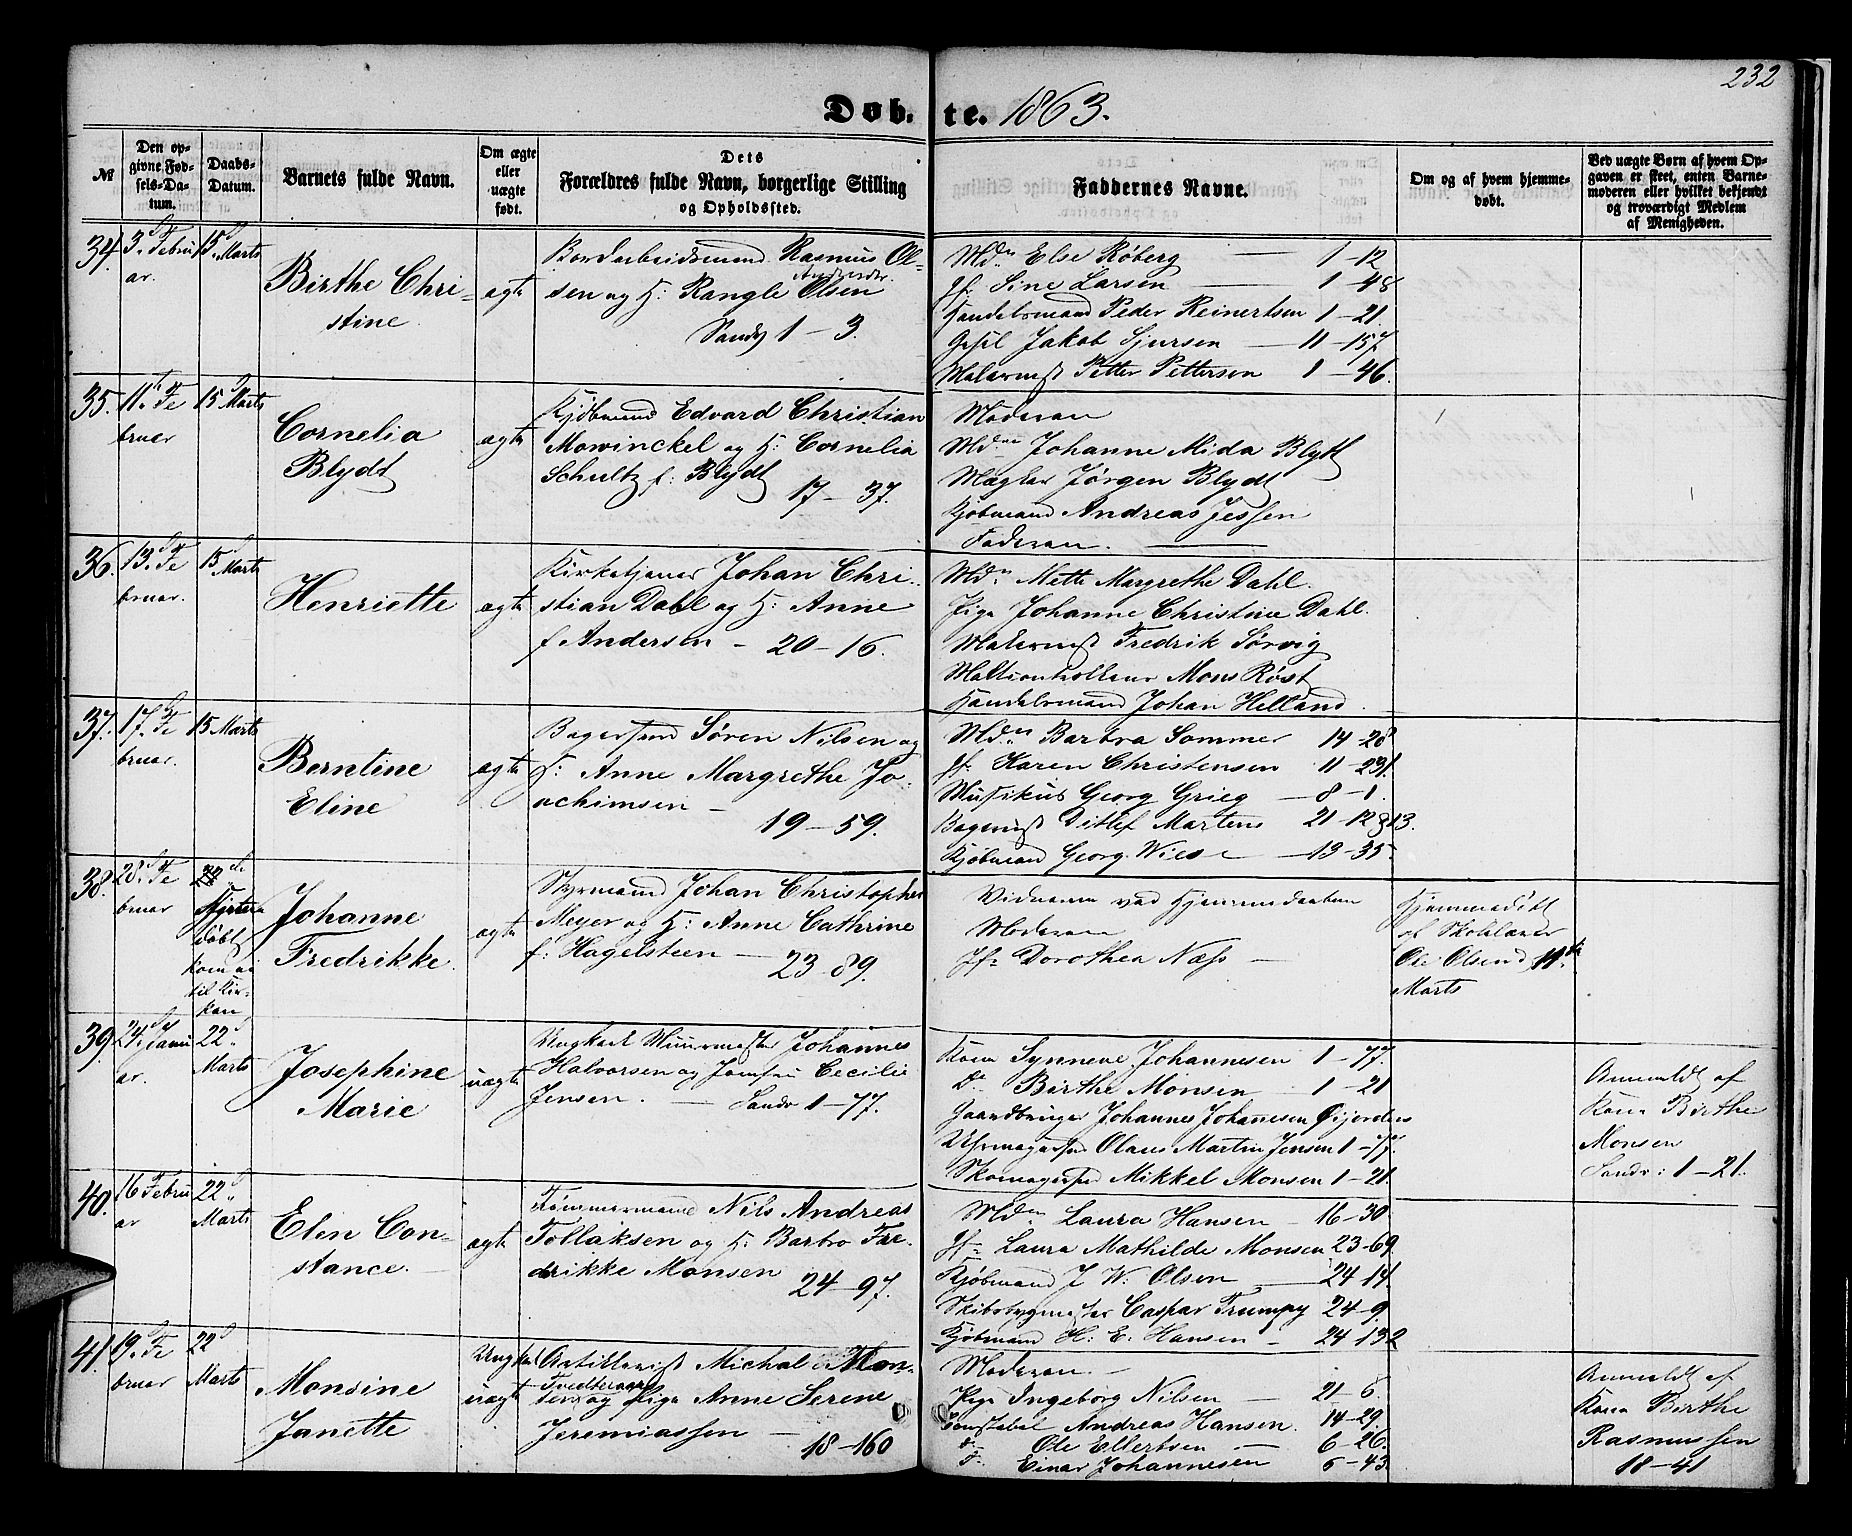 232
Døbte. 1863.
№
Den opgivne Fødsels-Datum.
Daabs-Datum.
Barnets fulde Navn.
Om ægte eller uægte født.
Dets Forældres fulde Navn, borgerlige Stilling og Opholdssted.
Faddernes Navne.
Om og af hvem hjemmedøbt.
Ved uægte Børn af hvem Opgaven er skeet, enten Barnemoderen eller hvilket bekjendt og troværdigt Medlem af Menigheden.
34. 3d Februar. 15d Marts
Birthe Christine.
ægte
Bordarbeidsmand Rasmus Ol-
sen og H: Rangle Olsen
Sandv 1 – 3.
Mdm Else Røberg 1 – 12
Jf. Sine Larsen 1 – 48
Handelsmand Peder Reinertsen 1 – 21
Jakob Sjursen 11 – 157
Malermst Petter Pettersen 1 – 46.
35. 11te Februar 15 Marts
Cornelia
Blydt
ægte
Kjøbmand Edvard Christian
Mowinckel og H: Cornelia
Schultz f: Blydt
17 – 37.
Moderen
Mdme Johanne Mida Blydt
Mægler Jørgen Blydt
Kjøbmand Andreas Jessen
Faderen.
36. 13d Februar. 15d Marts
Henriette
ægte
Kirketjener Johan Chri-
stian Dahl og H: Anne
f Andersen – 20 – 16.
Mdm Mette Margrethe Dahl.
Pige Johanne Christine Dahl.
Malermst Fredrik Sørvig
Mons Røst
Handelsmand Johan Helland
37. 17d Februar. 15 Marts
Berntine
Eline
ægte
Bagersvend Søren Nilsen og
H: Anne Margrethe Jo-
achimsen –
19 – 59.
Mdm Barbra Sommer 14 – 28
Jf. Karen Christensen 11 – 231
Musikus Georg Grieg – 8 – 1.
Bagermst Ditlef Martens 21 – 12 & 13.
Kjøbmand Georg Wiese – 19 – 35
38. 28d Februar
døbt
kom ei
til Kir-
ken
Johanne
Fredrikke.
ægte
Styrmand Johan Christopher
Meyer og H: Anne Cathrine
f. Hagelsteen –
23 – 89.
Vidnerne ved Hjemmedaaben
Moderen
Jfr Dorothea Næss –
Hjemmedøbt
af Skolelærer
Ole Olsen d 11te
Marts
39. 24d Januar. 22d Marts
Josephine
Marie
uægte
Ungkarl Muurmester Johannes
Halvorsen og Jomfru Cecilie
Jensen. – Sandv 1 – 77.
Kone Synneve Johannesen 1 – 77.
Do Birthe Monsen 1 – 21
Gaardbruger Johannes Johanesen
Uhrmagersvd Olaus Martin Jensen 1 – 77.
Skomagersvd Mikkel Monsen 1 – 21.
Anmeldt af
Kone Birthe
Monsen
Sandv: 1 – 21.
40. 16 Februar 22d Marts
Elen Con-
stance.
ægte
Tømmermand Nils Andreas
Tollaksen og H: Barbro Fre-
drikke Monsen
24 – 97.
Mdm Laura Hansen – 16 – 30
Jfr Laura Mathilde Monsen 23 – 69
Kjøbmand J W: Olsen 24 – 14
Skibsbygmester Caspar Trumpy 24 – 9
Kjøbmand H: E: Hansen – 24 – 132
41. 19d Februar 22d Marts
Monsine
Janette
uægte
Ungkarl Artillerist Michal Mon-
sen og Pige Anne Serene
Jeremiassen –
18 – 160
Moderen –
Pige Ingeborg Nilsen – 21 – 6
Konstabel Andreas Hansen. 14 – 29.
do Ole Ellertsen – 6 – 26.
Einar Johannesen 6 – 43
Anmeldt af
Kone Birthe
Rasmussen
18 – 41